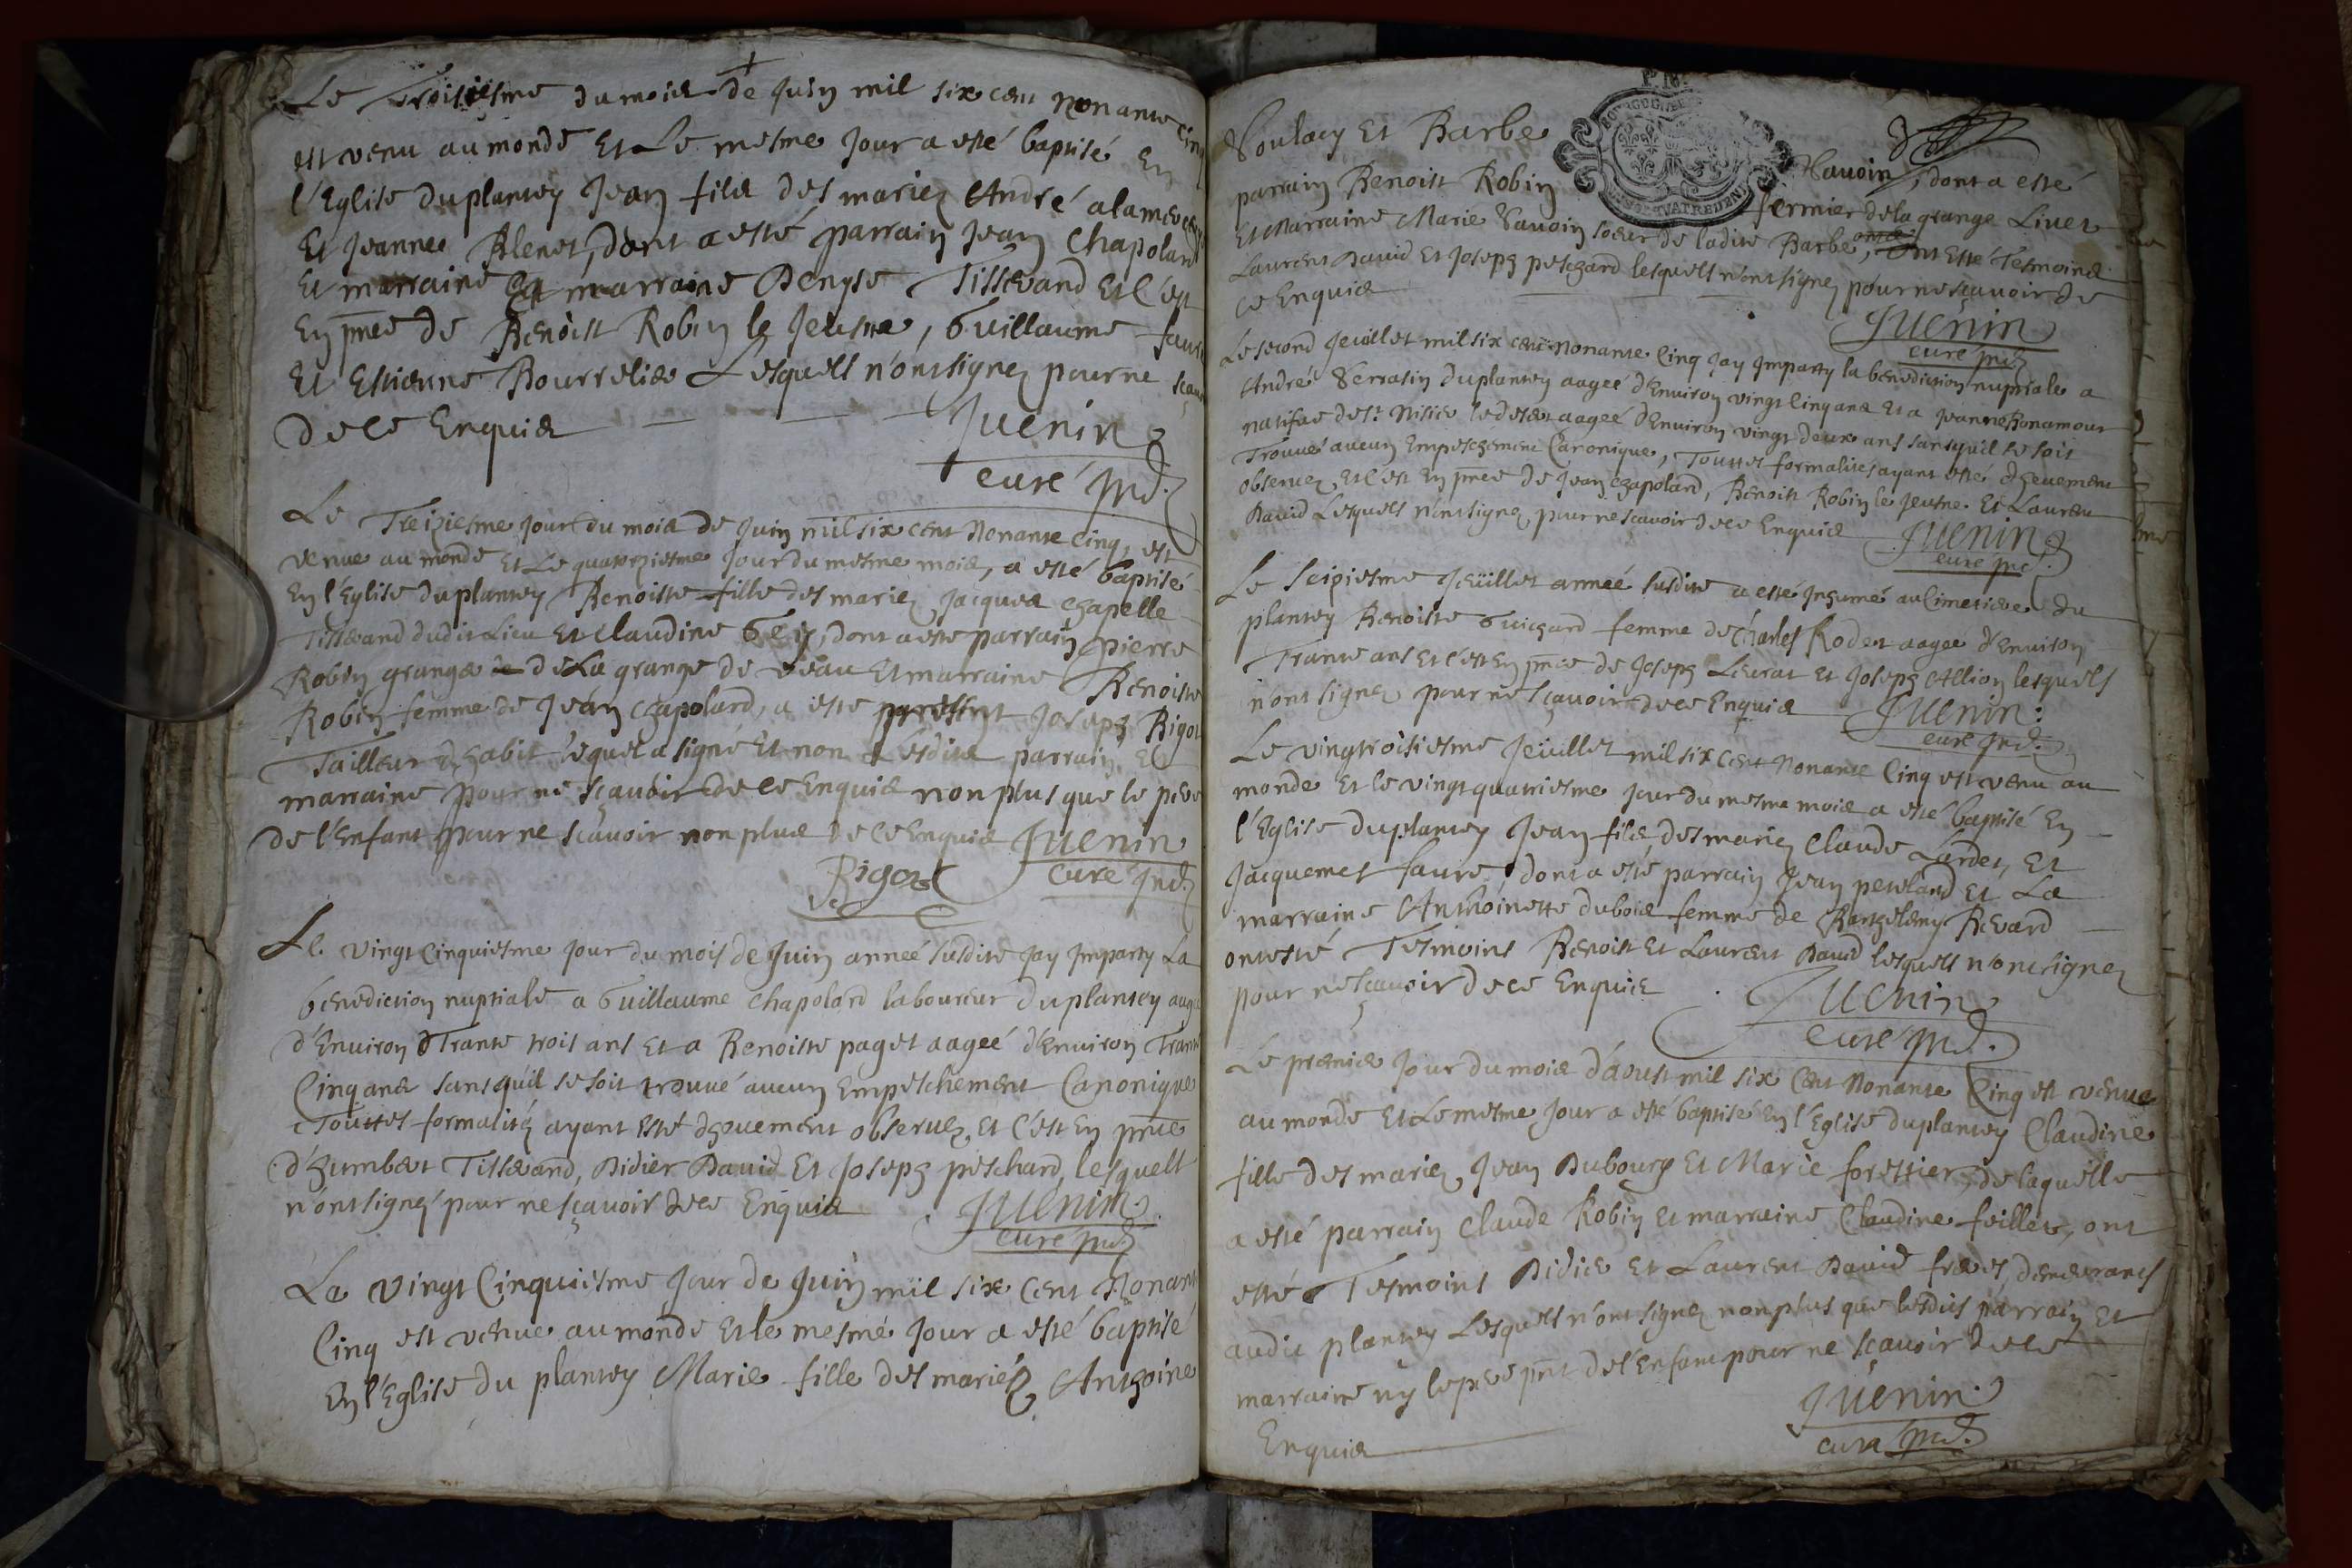 Le Troisiesme du mois de Juin mil six cent nonante Cinq
est venu au monde Et Le mesme Jour a esté baptisé En
l'Eglise duplantey Jean fils des mariez André
Et Jeanne Blenet, dont a esté parrain Jean Chapoland
Et marraine Et marraine Denyse Tisserand Et C'est
En pnce de Benoist Robin le Jeusne, Guillaume faure
Et Estienne Bourrelier Lesquels n'ont signez pour ne scavoir
de ce Enquis Juenin
curé Ind.
Le Treiziesme Jour du mois de Juin mil six cent Nonante Cinq, est
venue au monde Et Le quatorziesme Jour du mesme mois, a esté baptisé
En l'Eglise duplantey Benoiste fille des mariez Jacques Chapelle
Tisserand dudit Lieu Et Claudine Gey, dont a esté parrain Pierre
Robin granger de La grange de veau Et marraine Benoiste
Robin femme de Jean Chapoland, a esté present Joseph Rigot
Tailleur d'habit lequel a signé Et non Lesdits parrain Et
marraine pour ne sçavoir de ce Enquis non plus que le pere
de l'Enfant pour ne scavoir non plus de ce Enquis Juenin
Rigot Curé Ind.
Le vingt Cinquiesme Jour du mois de Juin année susdite Jay Imparty La
benediction nuptiale a Guillaume Chapoland laboureur duplantey aagé
d'Environ Trante trois ans Et a Benoiste paget aageé d'Environ Trante
Cinq ans sans qu'il se soit trouué aucun Empeschement Canonique
Touttes formalitéz ayant esté dhouement obseruez, Et C'est En pnce
d'humbert Tisserand, Didier Dauid Et Joseph peschard, lesquels
n'ont signez pour ne sçavoir de ce Enquis Juenin
curé Ind.
Le vingt Cinquiesme Jour de Juin mil six Cent Nonante
Cinq est venue au monde Et le mesme Jour a esté baptisé
En l'Eglise du plantey Marie fille des mariéz Anthoine
Et Barbe Sauoin, dont a esté
parrain Benoist Robin fermier de la grange Liuet
Et Marraine Marie Sauoin soeur de ladite Barbe, ont Esté Tesmoins
Laurent Dauid Et Joseph peschard lesquels n'ont signez pour ne sçavoir de
ce Enquis
Juenin
curé Ind.
Le second Jeuillet mil six cent Nonante Cinq Jay Imparty la benediction nuptiale a
André Serrasin duplantey aageé d'Environ vingt Cinq ans Et a Jeanne Bonamour
natifue de St. Nisier aageé d'Environ vingt deux ans sans qu'il se soit
Trouué aucun Empeschement Canonique, Touttes formalites ayant esté dheuement
obseruez, Et C'est En pnce de Jean Chapoland, Benoist Robin le Jeusne Et Laurent
Dauid Lesquels n'ont signez pour ne scavoir de ce Enquis Juenin
curé Ind.
Le Seiziesme Jeüillet année susdite a esté Inhumé au Cimetiere du
plantey Benoiste Guichard femme de Charles Rodet aagee d'Environ
Trante ans Et C'est En pnce de Joseph Leurat Et Joseph Allion lesquels
n'ont signez pour ne scavoir de ce Enquis Juenin
curé Ind.
Le vingtroisiesme Jeuillet mil six Cent Nonante Cinq est venu au
monde Et le vingt quatriesme Jour du mesme mois a esté baptisé En
l'Eglise duplantey Jean fils des mariez Claude Lardet, Et
Jacquemet faure, dont a esté parrain Jean Et La
marraine Anthoinette dubois femme de Barthelemy Reuard
ont esté Tesmoins Benoist Et Laurent Dauid lesquels n'ont signez
pour ne scavoir de ce Enquis Juenin
curé Ind.
Le premier Jour du mois d'aoust mil six Cent Nonante Cinq est venue
au monde Et Le mesme Jour a esté baptisé En l'Eglise duplantey Claudine
fille des mariez Jean Dubourg Et Marie forestier, de laquelle
a esté parrain Claude Robin Et marraine Claudine feillet, ont
esté Tesmoins Didier Et Laurent Dauid freres, demeurants
audit plantey Lesquels n'ont signez non plus que lesdits parrain Et
marraine ny le pere pnt de l'Enfant pour ne scavoir de ce
Enquis
Juenin
curé Ind.